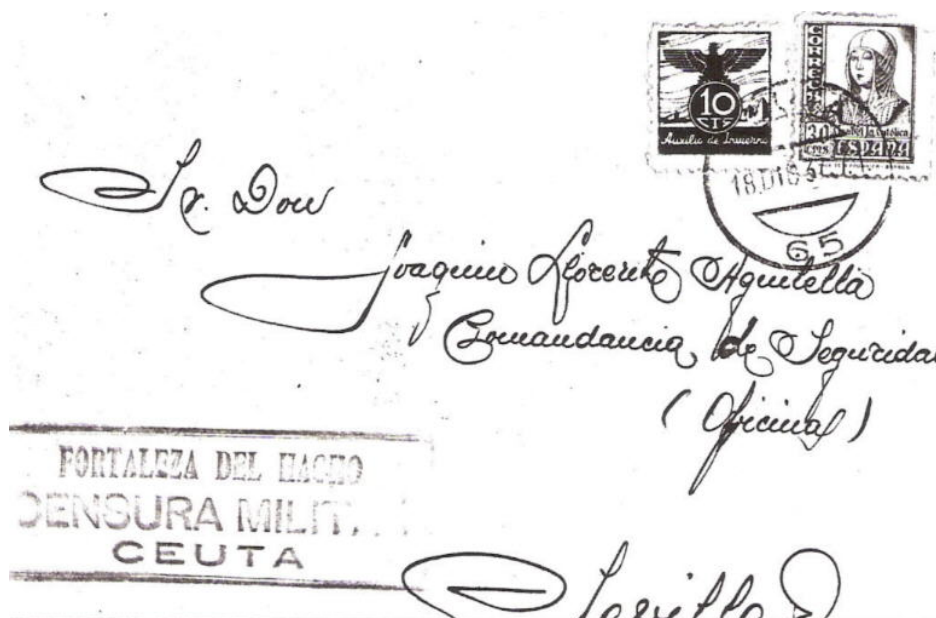 CORREOS
10
CTS
Auxilio de Invierno
30
CTS
Isabel la Católica
ESPAÑA
18 DIC 3
65
Sr. Don
Joaquin Llorente Aguilella
Comandancia de Seguridad
(Oficina)
FORTALEZA DEL HACHO
CENSURA MILIT
CEUTA
Sevilla